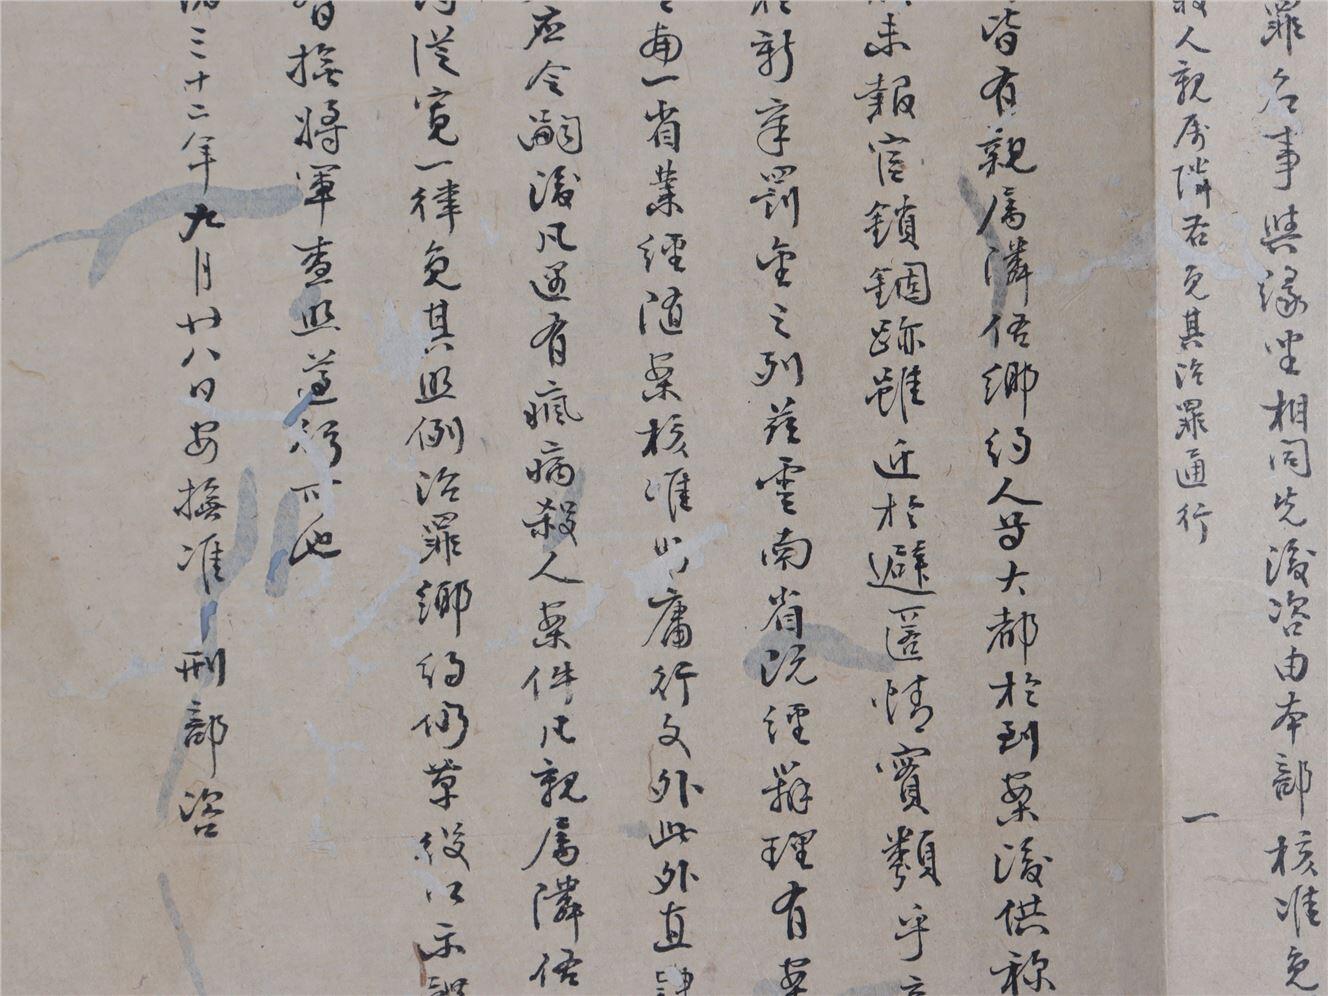 罪名事與緣坐相同先後咨由本部核准免
殺人親屬隣右免其治罪通行 一
皆有親屬隣佑鄉約人等大都於到案後供称
未報官鎖錮跡雖近於避匿情實類乎
於新章罰金之列茲雲南省既經辦理有案
南一省業經随案核准 庸行文外此外直
应令嗣後凡遇有瘋病殺人案件凡親屬隣佑
從寬一律免其照例治罪鄉約仍草役以示
撫將軍查照遵行可也
三十二年九月廿八日安撫准刑部咨